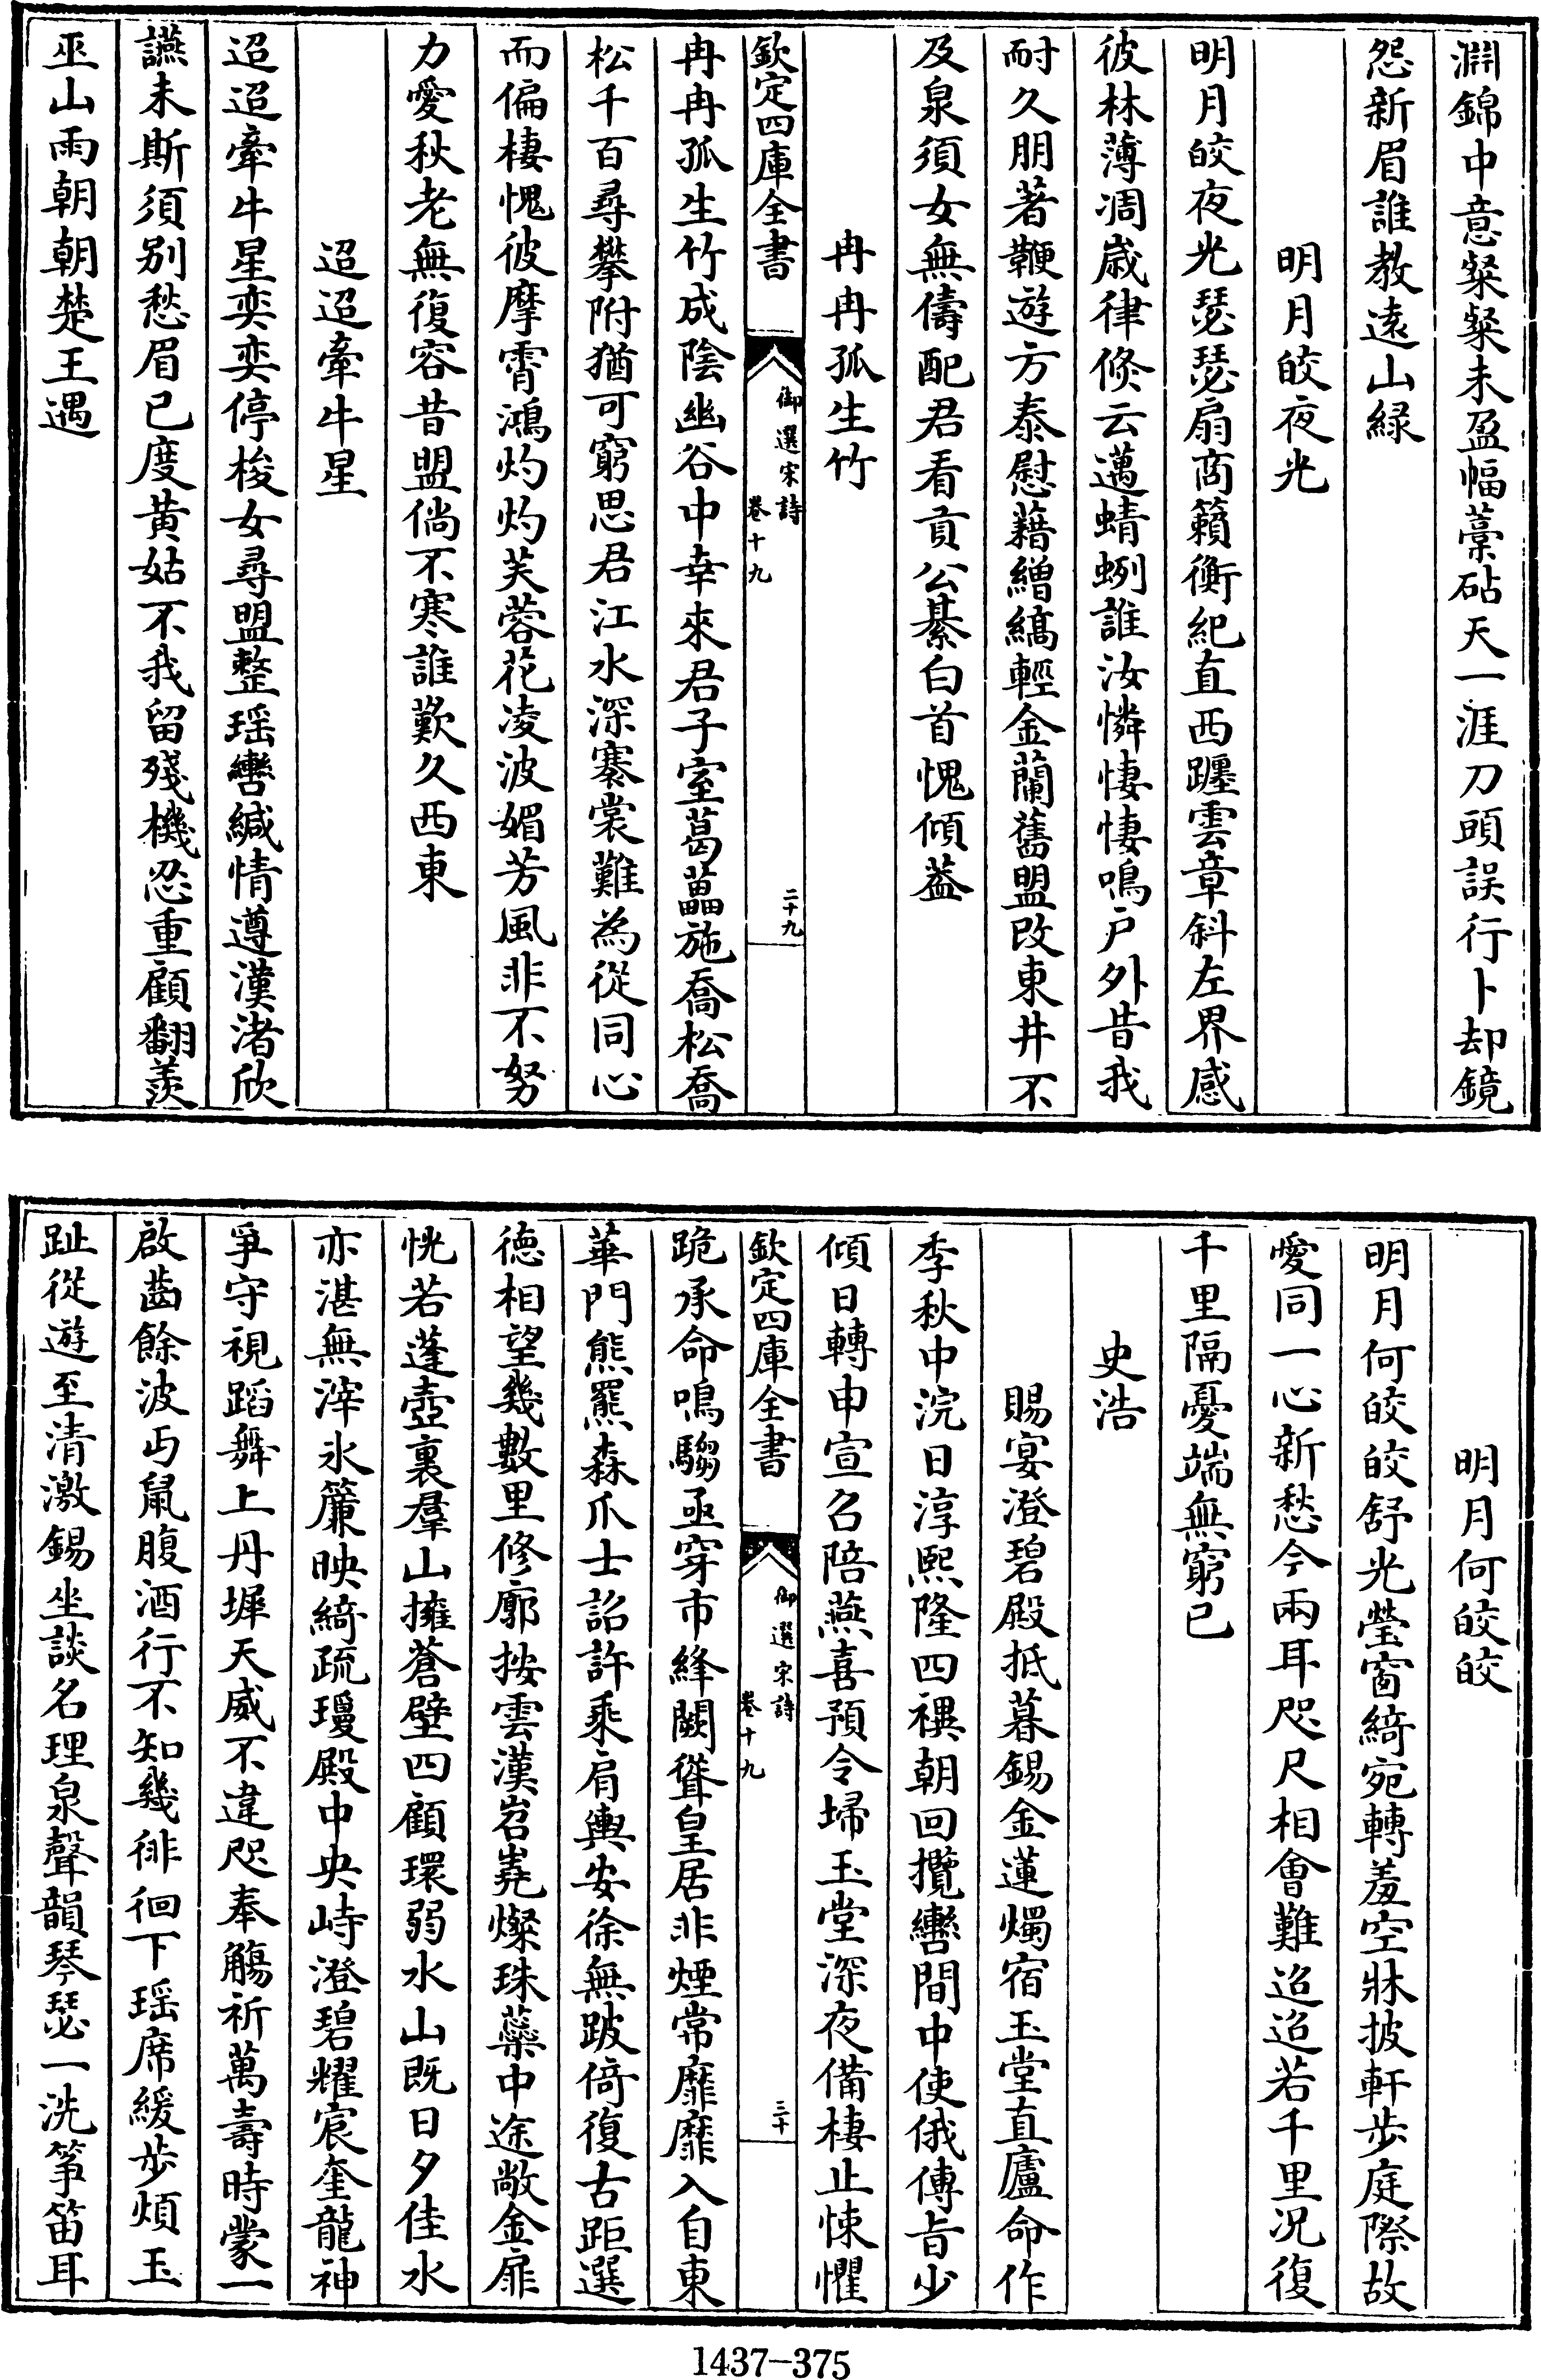 淵錦中意粲粲未盈幅藁砧天一涯刀頭誤行卜却鏡
怨新眉誰教遠山緑
明月皎夜光
明月皎夜光瑟瑟扇商籟衡紀直西躔雲章斜左界感
彼林薄凋歳律倐云邁蜻蛚誰汝憐悽悽鳴户外昔我
耐久朋著鞭遊方泰慰藉繒縞輕金蘭舊盟改東井不
及泉須女無儔配君看貢公綦白首愧傾葢
冉冉孤生竹
欽定四庫全書
御選宋詩
卷十九
二十九
冉冉孤生竹成陰幽谷中幸來君子室葛藟施喬松喬
松千百尋攀附猶可窮思君江水深褰裳難為從同心
而偏棲愧彼摩霄鴻灼灼芙蓉花凌波媚芳風非不努
力愛秋老無復容昔盟倘不寒誰歎久西東
迢迢牽牛星
迢迢牽牛星奕奕停梭女尋盟整瑶轡緘情遵漢渚欣
讌未斯須别愁眉已度黄姑不我留殘機忍重顧翻羨
巫山雨朝朝楚王遇
明月何皎皎
明月何皎皎舒光瑩窗綺宛轉羞空牀披軒步庭際故
愛同一心新愁今兩耳咫尺相會難迢迢若千里况復
千里隔憂端無窮已
史浩
賜宴澄碧殿抵暮錫金蓮燭宿玉堂直廬命作
季秋中浣日淳熙隆四禩朝回攬轡間中使俄傳㫖少
傾日轉申宣召陪燕喜預令埽玉堂深夜備棲止悚懼
欽定四庫全書
御選宋詩
卷十九
三十
跪承命鳴騶亟穿市絳闕聳皇居非煙常靡靡入自東
華門熊羆森爪士詔許乘肩輿安徐無跛倚復古距選
德相望幾數里修廓按雲漢岧嶤燦珠蘂中途敞金扉
恍若蓬壺裏羣山擁蒼壁四顧環弱水山既日夕佳水
亦湛無滓氷簾映綺疏璦殿中央峙澄碧耀宸奎龍神
爭守視蹈舞上丹墀天威不違咫奉觴祈萬壽時蒙一
啟齒餘波丐鼠腹酒行不知幾徘徊下瑶席緩步煩玉
趾從遊至清激錫坐談名理泉聲韻琴瑟一洗筝笛耳
1437-375